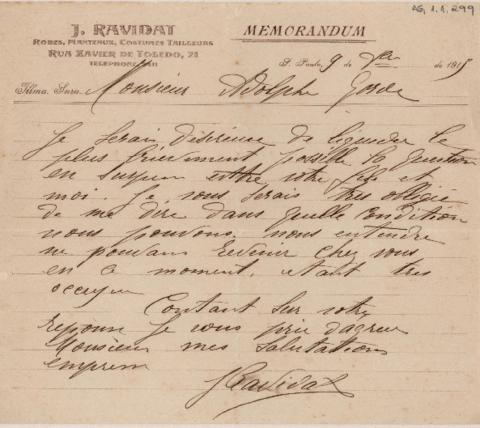 AG. 1. 1. 299
J. RAVIDAT
ROBES, MANTEAUX, COSTUMES TAILLEURS
RUA XAVIER DE TOLEDO, 21
TELEPHONE
MEMORANDUM
S. Paulo, 9 de de 191
Illma. Snra. Monsieur Adolphe
Je serais désireuse de liquider le
plus brièvement possible la question
en suspen entre votre fils et
moi. Je vous serais très obligée
de me dire dans quelle condition
nous pouvons nous entendre
ne pouvans revenir chez vous
en ce moment, etant très
occupée
Contant sur votre
reponse je vous prie d'agreer
Monsieur mes salutations
empress
J Ravidat